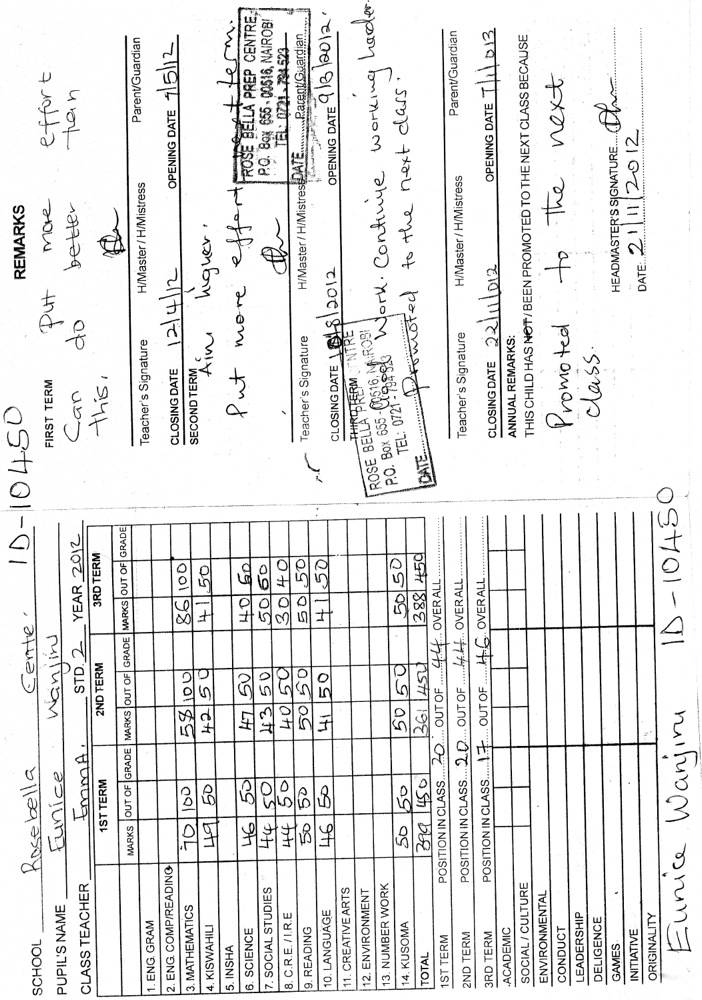 SCHOOL Rosebella Centre. ID-10450
PUPIL'S NAME Eunice Wanjiru
CLASS TEACHER Emma. STD. 2 YEAR 2012
1ST TERM 2ND TERM 3RD TERM
MARKS OUT OF GRADE MARKS OUT OF GRADE MARKS OUT OF GRADE
1. ENG. GRAM
2. ENG. COMP/READING
3. MATHEMATICS 70 100 58 100 86 100
4. KISWAHILI 49 50 42 50 41 50
5. INSHA
6. SCIENCE 46 50 47 50 40 50
7. SOCIAL STUDIES 44 50 43 50 50 60
8. C.R.E. / I.R.E 44 50 40 50 30 40
9. READING 50 50 50 50 50 50
10. LANGUAGE 46 50 41 50 41 50
11. CREATIVE ARTS
12. ENVIRONMENT
13. NUMBER WORK
14. KUSOMA 50 50 50 50 50 50
TOTAL 399 450 361 450 388 450
1ST TERM POSITION IN CLASS 20 OUT OF 44 OVERALL
2ND TERM POSITION IN CLASS 20 OUT OF 44 OVERALL
3RD TERM POSITION IN CLASS 17 OUT OF 46 OVERALL
ACADEMIC
SOCIAL / CULTURE
ENVIRONMENTAL
CONDUCT
LEADERSHIP
DELIGENCE
GAMES
INITIATIVE
ORIGINALITY
Eunice Wanjiru ID-10450
REMARKS
FIRST TERM Put more effort
Can do better than
this.
Teacher's Signature H/Master / H/Mistress Parent/Guardian
CLOSING DATE 12/4/12 OPENING DATE 7/5/12
SECOND TERM
Aim higher.
Put more effort next term.
ROSE BELLA PREP CENTRE
P.O. Box 655 - 00516, NAIROBI
TEL: 0721-784 523
DATE
Teacher's Signature H/Master / H/Mistress Parent/Guardian
CLOSING DATE /8/2012 OPENING DATE 9/2012
THIRD TERM Good Work. Continue working harder.
Promoted to the next class.
ROSE BELLA PREP CENTRE
P.O. Box 655 - 00516, NAIROBI
TEL: 0721-784 523
DATE
Teacher's Signature H/Master / H/Mistress Parent/Guardian
CLOSING DATE 22/11/012 OPENING DATE 7/1/013
ANNUAL REMARKS:
THIS CHILD HAS NOT / BEEN PROMOTED TO THE NEXT CLASS BECAUSE
Promoted to the next
class.
HEADMASTER'S SIGNATURE
DATE: 21/11/2012